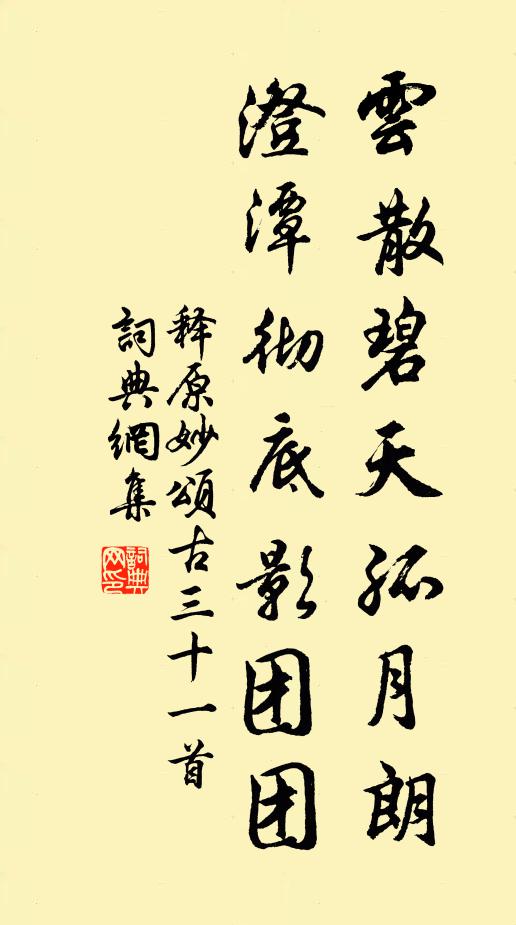 雲散碧天孤月朗
澄潭彻底影团团
释原妙頌古三十一首
詞典網集
詞典网印